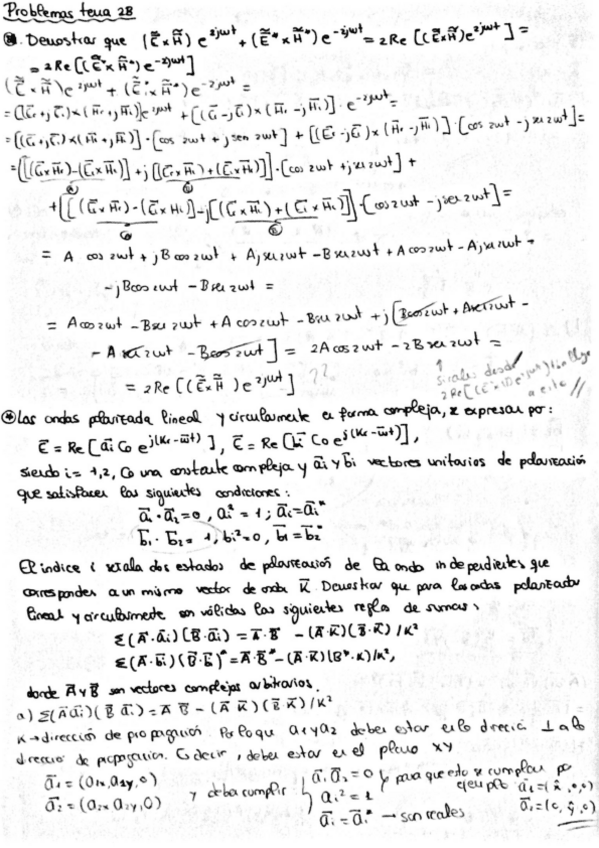 Problemas tema 28
. Demostrar que (Ẽ × H̃) e^{2jωt} + (Ẽ* × H̃*) e^{-2jωt} = 2Re [(Ẽ×H̃) e^{2jωt}] =
= 2Re [(Ẽ* × H̃*) e^{-2jωt}]
(Ẽ × H̃) e^{2jωt} + (Ẽ* × H̃*) e^{-2jωt} =
= [(Er + jEi) × (Hr + jHi)] e^{2jωt} + [(Er - jEi) × (Hr - jHi)] · e^{-2jωt} =
= [(Er + jEi) × (Hr + jHi)] · [cos 2ωt + j sen 2ωt] + [(Er - jEi) × (Hr - jHi)] · [cos 2ωt - j sen 2ωt] =
= [[(Er×Hr) - (Ei×Hi)] + j[(Er×Hi) + (Ei×Hr)]] · [cos 2ωt + j sen 2ωt] +
+ [[(Er×Hr) - (Ei×Hi)] - j[(Er×Hi) + (Ei×Hr)]] · [cos 2ωt - j sen 2ωt] =
= A cos 2ωt + jB cos 2ωt + Aj sen 2ωt - B sen 2ωt + A cos 2ωt - Aj sen 2ωt +
- jB cos 2ωt - B sen 2ωt =
= A cos 2ωt - B sen 2ωt + A cos 2ωt - B sen 2ωt + j[B cos 2ωt + A sen 2ωt -
- A sen 2ωt - B cos 2ωt] = 2A cos 2ωt - 2B sen 2ωt =
= 2Re [(Ẽ × H̃) e^{2jωt}] ??
desde
llego
a esto //
Las ondas polarizada lineal y circularmente en forma compleja, se expresan por:
E = Re [ai Co e^{j(kr - ωt)}], E = Re [bi Co e^{j(kr - ωt)}],
siendo i = 1,2, Co una constante compleja y ai y bi vectores unitarios de polarización
que satisfacen las siguientes condiciones:
a1 · a2 = 0, ai² = 1; ai = ai*
b1 · b2 = 1, bi² = 0, b1 = b2*
El indice i señala dos estados de polarización de la onda independientes que
corresponden a un mismo vector de onda K. Demostrar que para las ondas polarizadas
lineal y circularmente son válidas las siguientes reglas de sumas:
Σ(A·ai)(B·ai) = A·B - (A·K)(B·K)/K²
Σ(A·bi)(B·bi)* = A·B* - (A·K)(B*·K)/K²,
donde A y B son vectores complejos arbitrarios.
a) Σ(A ai)(B ai) = A B - (A K)(B K)/K²
K → dirección de propagación. Por lo que a1 y a2 deben estar en la direcció ⊥ a la
direccio de propagación. Es decir, deben estar en el plano xy
a1 = (a1x, a1y, 0)
a2 = (a2x, a2y, 0)
y deba cumplir
a1 a2 = 0
ai² = 1
ai = ai* → son reales
y para que esto se cumplan por
ejemplo a1 = (x̂, 0, 0)
a2 = (0, ŷ, 0)